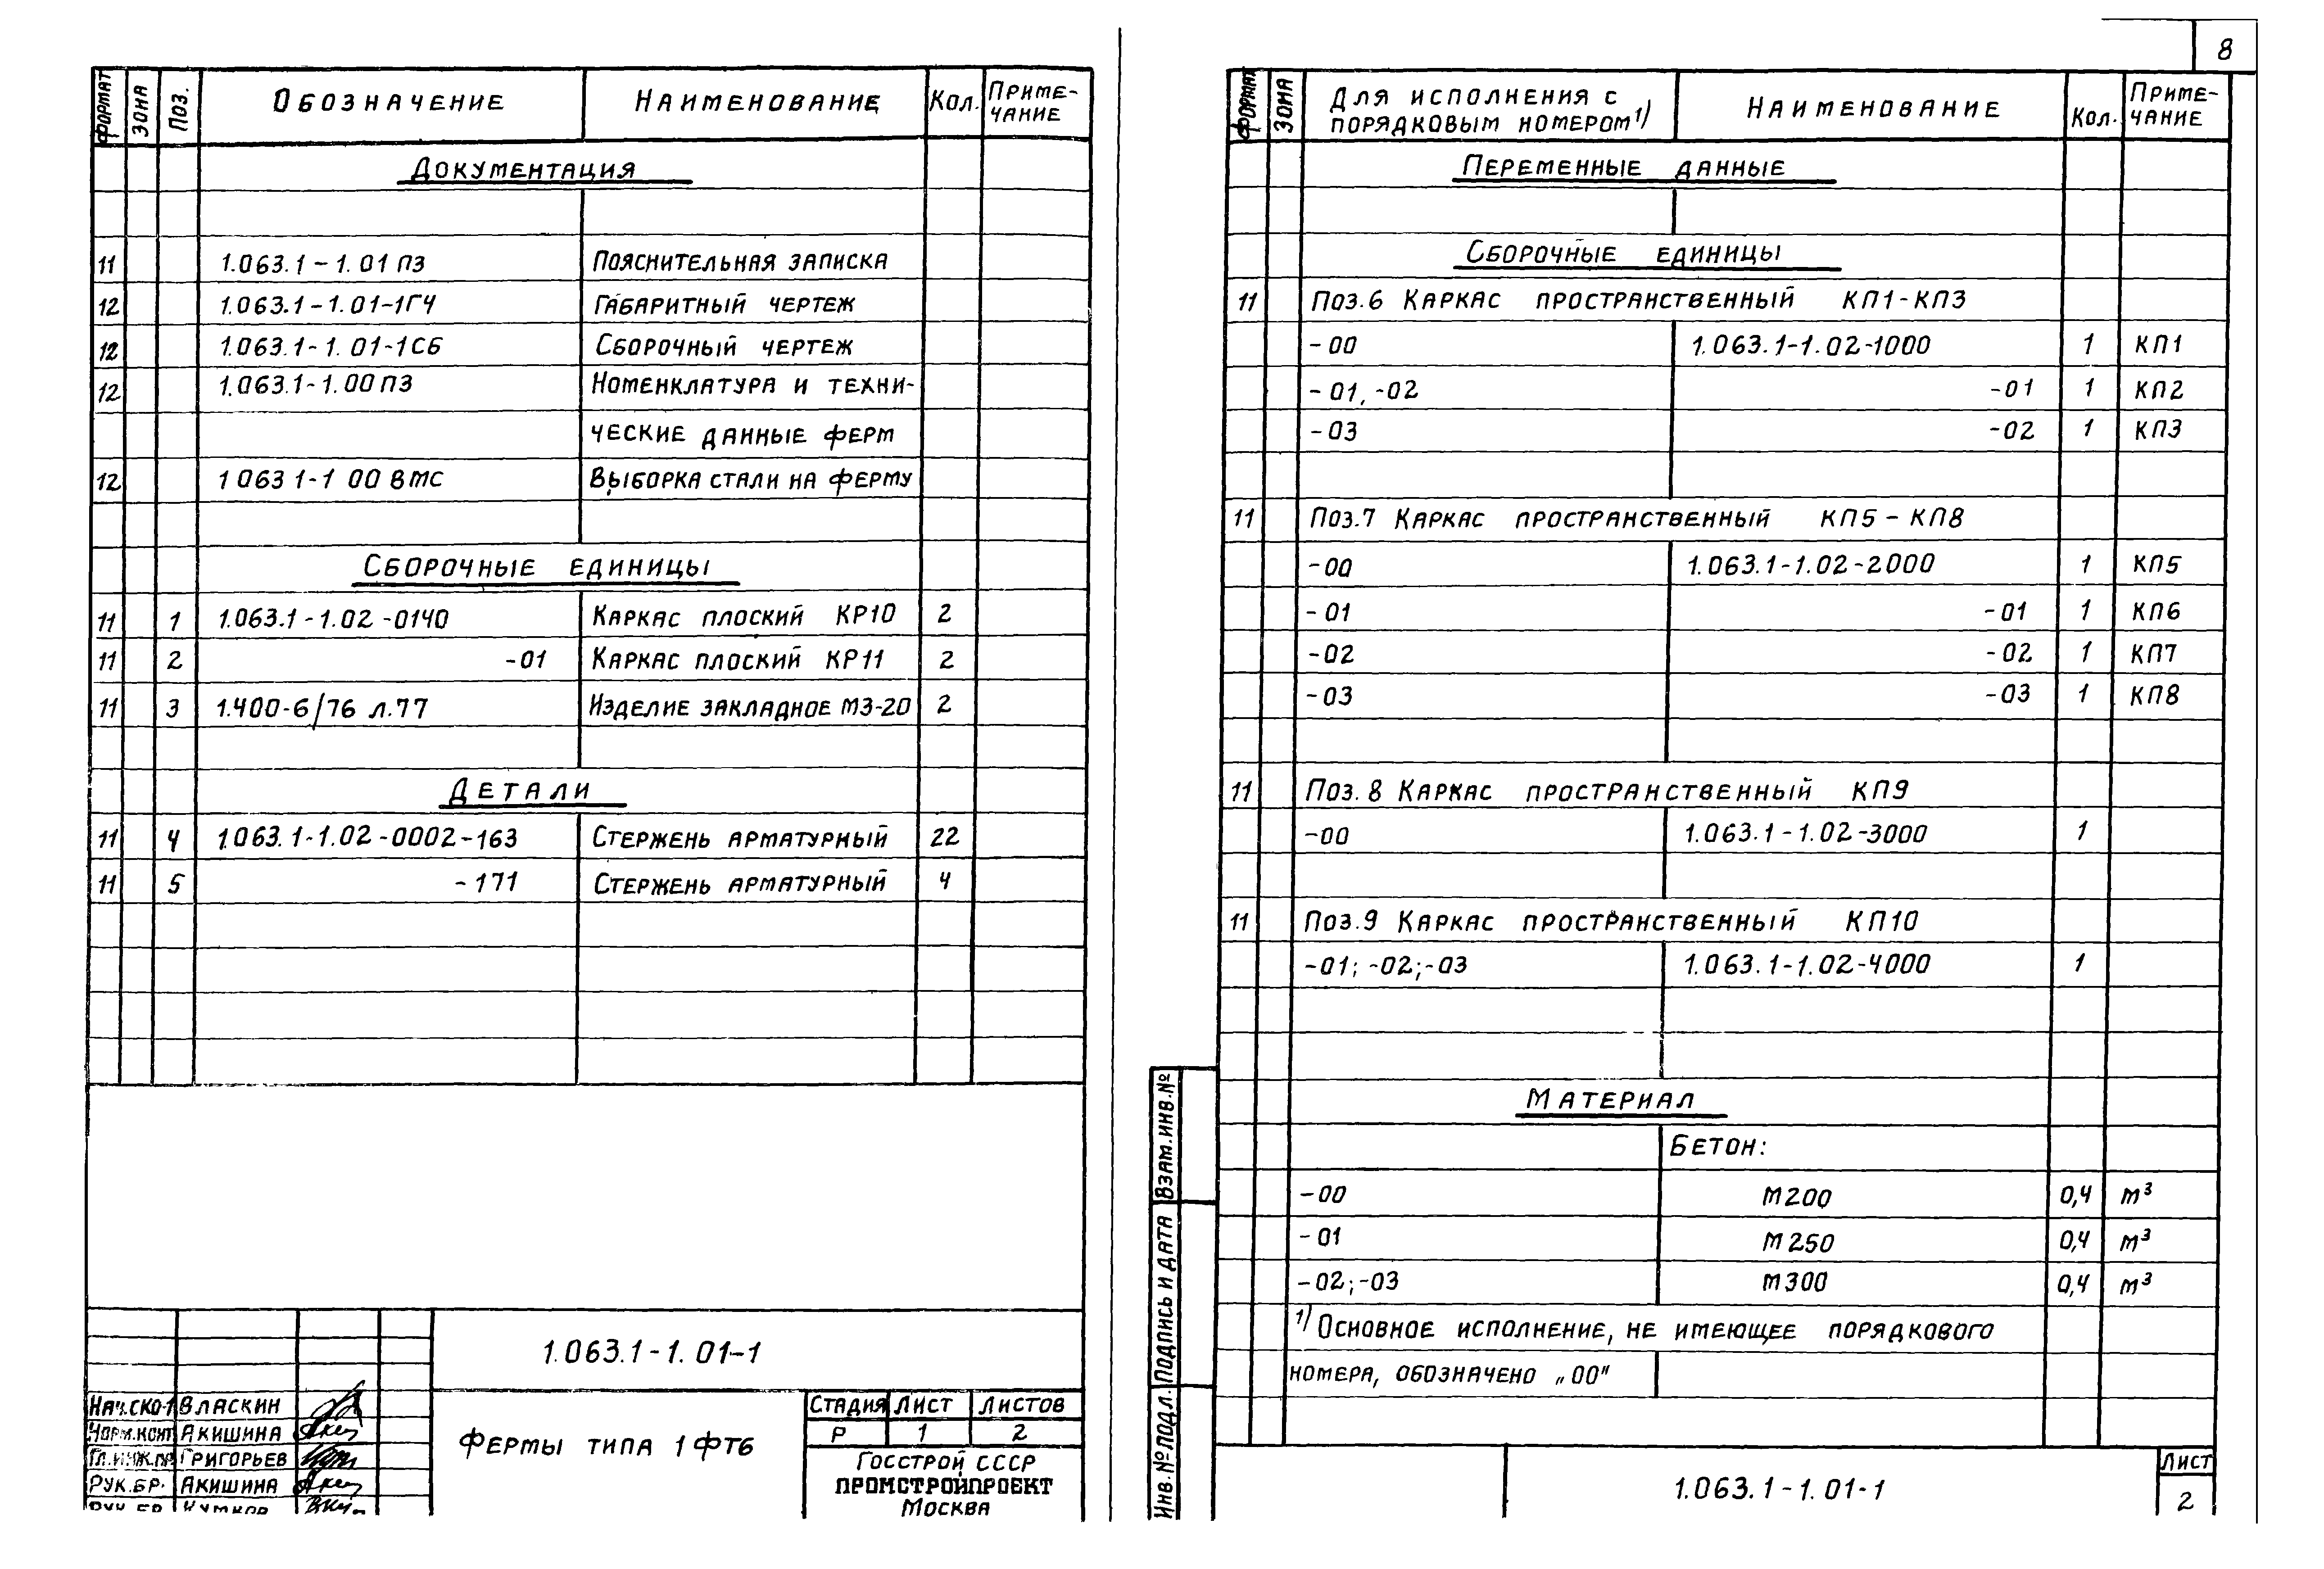 ФОРМАТ ЗОНА ПОЗ. ОБОЗНАЧЕНИЕ НАИМЕНОВАНИЕ КОЛ. ПРИМЕ-
ЧАНИЕ
ДОКУМЕНТАЦИЯ
11 1.063.1-1.01 ПЗ ПОЯСНИТЕЛЬНАЯ ЗАПИСКА
12 1.063.1-1.01-1ГЧ ГАБАРИТНЫЙ ЧЕРТЕЖ
12 1.063.1-1.01-1СБ СБОРОЧНЫЙ ЧЕРТЕЖ
12 1.063.1-1.00 ПЗ НОМЕНКЛАТУРА И ТЕХНИ-
ЧЕСКИЕ ДАННЫЕ ФЕРМ
12 1 063 1-1 00 ВМС ВЫБОРКА СТАЛИ НА ФЕРМУ
СБОРОЧНЫЕ ЕДИНИЦЫ
11 1 1.063.1-1.02-0140 КАРКАС ПЛОСКИЙ КР10 2
11 2 -01 КАРКАС ПЛОСКИЙ КР11 2
11 3 1.400-6/76 Л.77 ИЗДЕЛИЕ ЗАКЛАДНОЕ МЗ-20 2
ДЕТАЛИ
11 4 1.063.1-1.02-0002-163 СТЕРЖЕНЬ АРМАТУРНЫЙ 22
11 5 -171 СТЕРЖЕНЬ АРМАТУРНЫЙ 4
1.063.1-1.01-1
НАЧ.СКО-1 ВЛАСКИН
НОРМ.КОНТ АКИШИНА
ГЛ.ИНЖ.ПР ГРИГОРЬЕВ
РУК.БР. АКИШИНА
РУК БР
ФЕРМЫ ТИПА 1 ФТ6
СТАДИЯ ЛИСТ ЛИСТОВ
Р 1 2
ГОССТРОЙ СССР
ПРОМСТРОЙПРОЕКТ
МОСКВА
8
ФОРМАТ ЗОНА ДЛЯ ИСПОЛНЕНИЯ С НАИМЕНОВАНИЕ КОЛ. ПРИМЕ-
ПОРЯДКОВЫМ НОМЕРОМ 1) ЧАНИЕ
ПЕРЕМЕННЫЕ ДАННЫЕ
СБОРОЧНЫЕ ЕДИНИЦЫ
11 ПОЗ.6 КАРКАС ПРОСТРАНСТВЕННЫЙ КП1-КП3
-00 1.063.1-1.02-1000 1 КП1
-01,-02 -01 1 КП2
-03 -02 1 КП3
11 ПОЗ.7 КАРКАС ПРОСТРАНСТВЕННЫЙ КП5-КП8
-00 1.063.1-1.02-2000 1 КП5
-01 -01 1 КП6
-02 -02 1 КП7
-03 -03 1 КП8
11 ПОЗ.8 КАРКАС ПРОСТРАНСТВЕННЫЙ КП9
-00 1.063.1-1.02-3000 1
11 ПОЗ.9 КАРКАС ПРОСТРАНСТВЕННЫЙ КП10
-01; -02;-03 1.063.1-1.02-4000 1
МАТЕРИАЛ
БЕТОН:
-00 М200 0,4 м³
-01 М250 0,4 м³
-02;-03 М300 0,4 м³
1) ОСНОВНОЕ ИСПОЛНЕНИЕ, НЕ ИМЕЮЩЕЕ ПОРЯДКОВОГО
НОМЕРА, ОБОЗНАЧЕНО „00"
ВЗАМ.ИНВ.№
ПОДПИСЬ И ДАТА
ИНВ.№ПОДЛ.
1.063.1-1.01-1
ЛИСТ
2